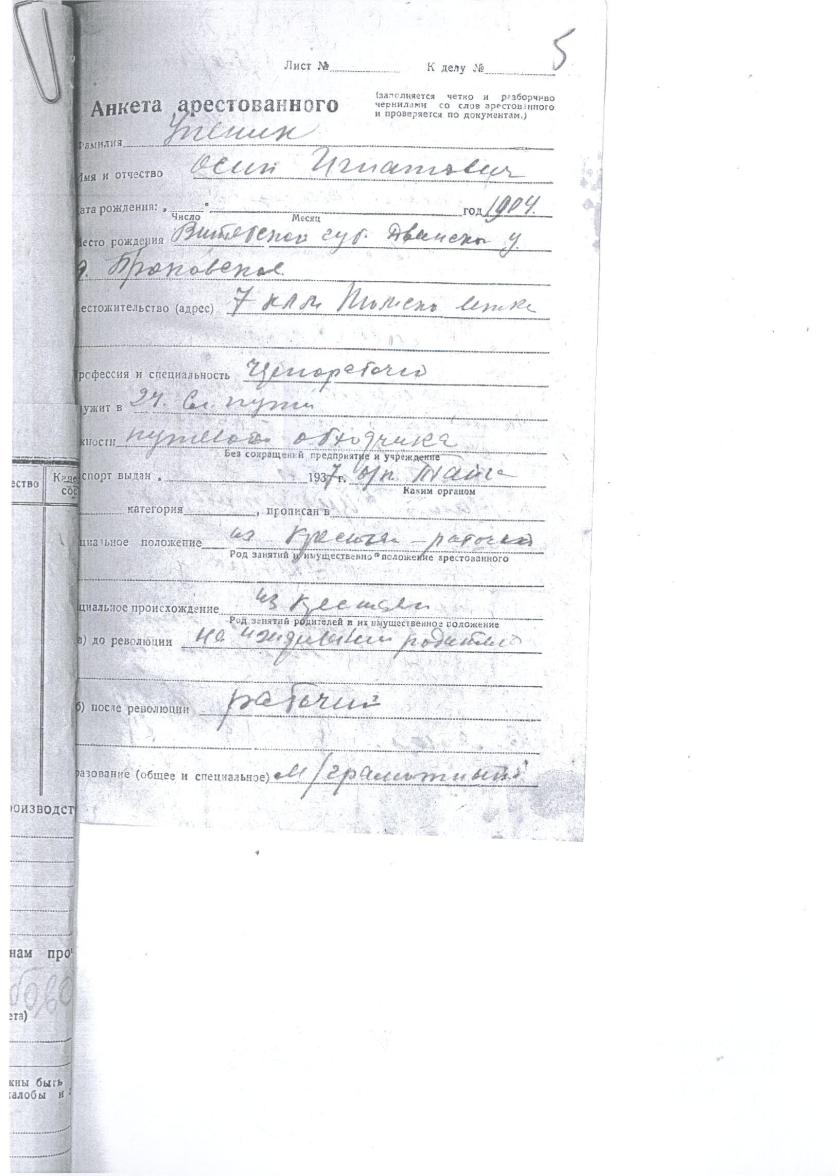 5
Лист № К делу №
Анкета арестованного
(заполняется четко и разборчиво
чернилами со слов арестованного
и проверяется по документам.)
Фамилия Упеник
Имя и отчество Осип Игнатович
ата рождения: „ " год 1904.
Число Месяц
есто рождения Витебской губ. Двинско у
д. Проковское
естожительство (адрес) 7 клм Томско ветке
рофессия и специальность Чернорабочий
ужит в 24. Сл. пути
жности путевой обходчика
Без сокращений предприятие и учреждение
спорт выдан „ 1937 г. о/п. Тайга
Каким органом
категория , прописан в
циальное положение из крестьян – рабочий
Род занятий и имущественное положение арестованного
циальное происхождение из крестьян
Род занятий родителей и их имущественное положение
а) до революции на иждивении родителей
б) после революции рабочий
разование (общее и специальное) м/грамотный
ество
роизводст
нам про
ета)
жны быть
жалобы и